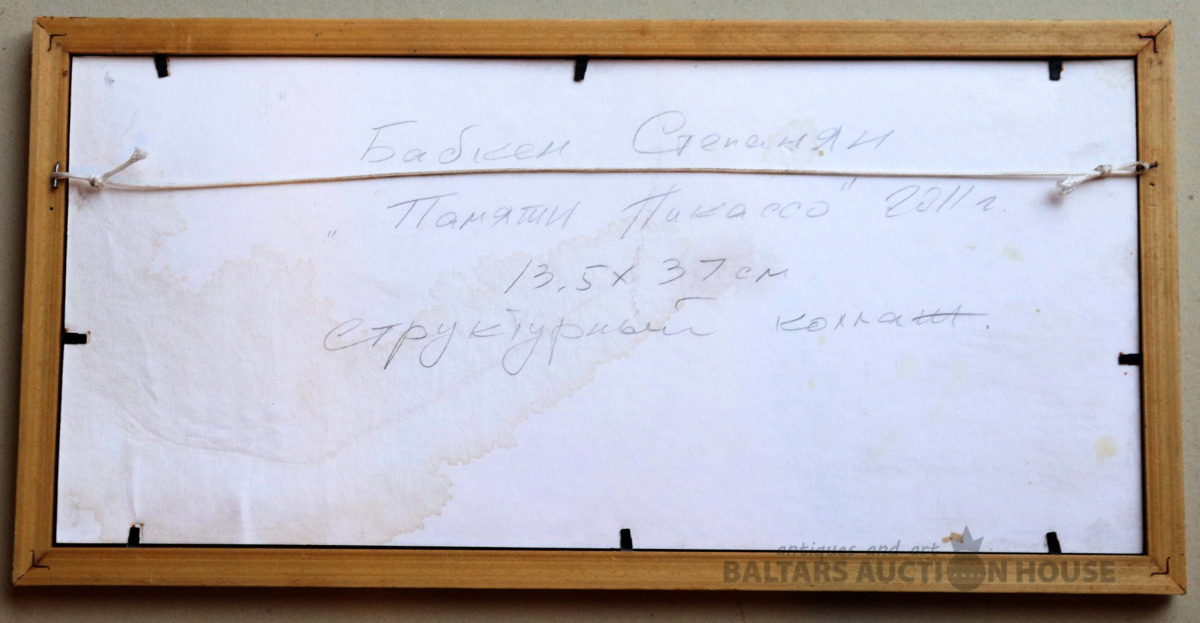 Бабкен Степанян
"Памяти Пикассо" 2011 г.
13,5 х 37 см
структурный коллаж.
antiques and art
BALTARS AUCTION HOUSE